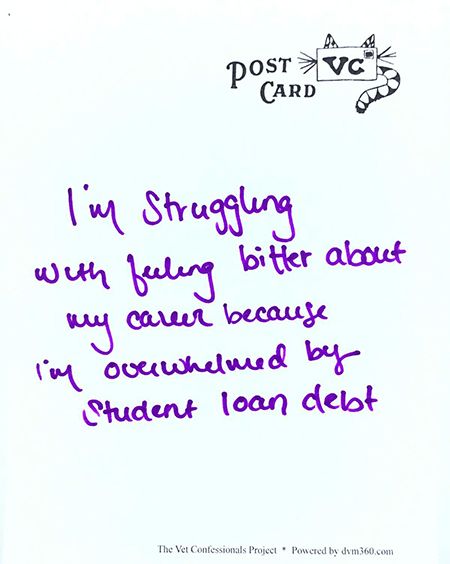 POST VC
CARD
I'm Struggling
with feeling bitter about
my career because
i'm overwhelmed by
Student loan debt
The Vet Confessionals Project * Powered by dvm360.com